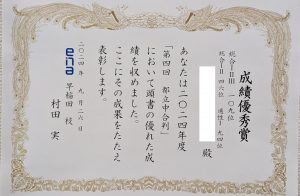 成績優秀賞
総合ⅠⅡⅢ 一〇九位
総合ⅠⅡ 四六位 適性Ⅰ 九四位
殿
あなたは２０２４年度
「第四回 都立中合判」
において頭書の優れた成
績を収めました。
ここにその成果をたたえ
表彰します。
二〇二四年 九月 二六日
ena 早稲田 校
村田 実